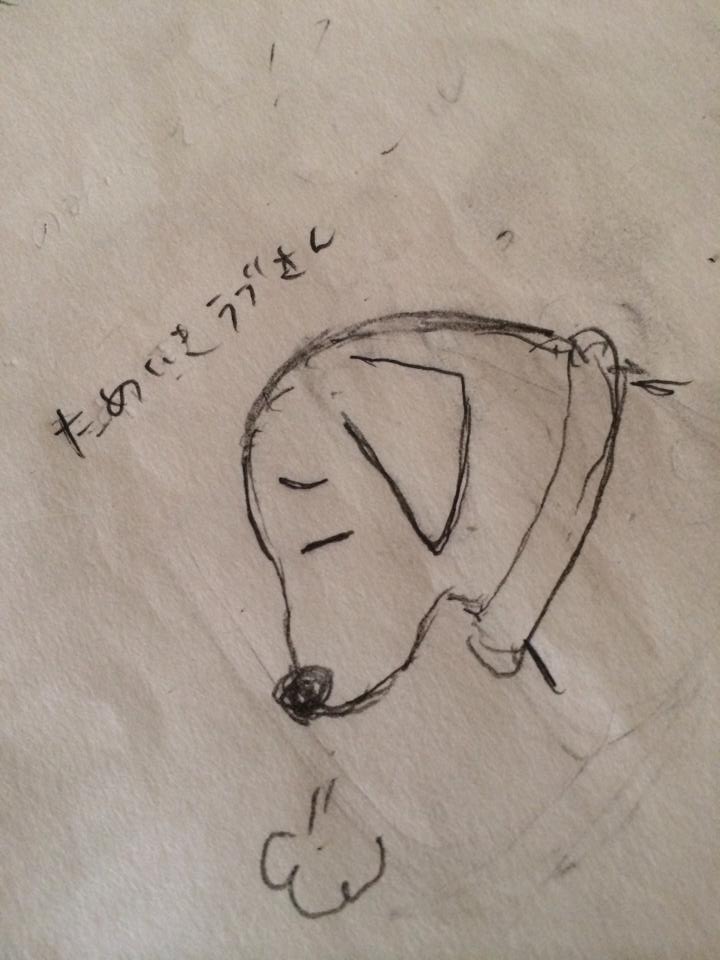 ためいきラブさん